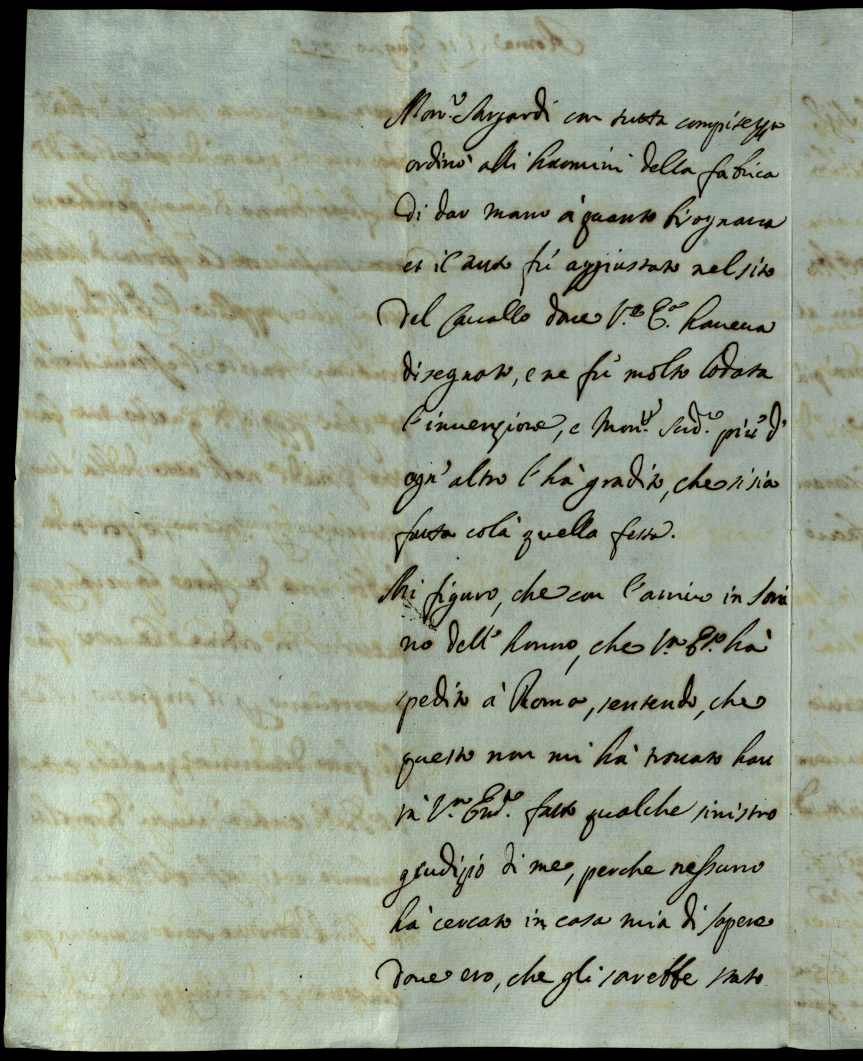 Mon.r Sergardi con tutta compitezza
ordinò alli huomini della fabrica
di dar mano à quanto bisognaua
et il tutto fù aggiustato nel sito
del Cauallo doue V.ra E.za haueua
disegnato, e ne fù molto lodata
l'inuenzione, e Mon.r sud.o più d'
ogn'altro l'hà gradito, che si sia
fatta colà quella festa.
Mi figuro, che con l'arriuo in Tori
no dell'huomo, che V.ra E.za hà
spedito à Roma, sentendo, che
questo non mi hà trouato hau
rà V.ra E.za fatto qualche sinistro
giudizio di me, perche nessuno
hà cercato in casa mia di sapere
doue ero, che gli sarebbe stato